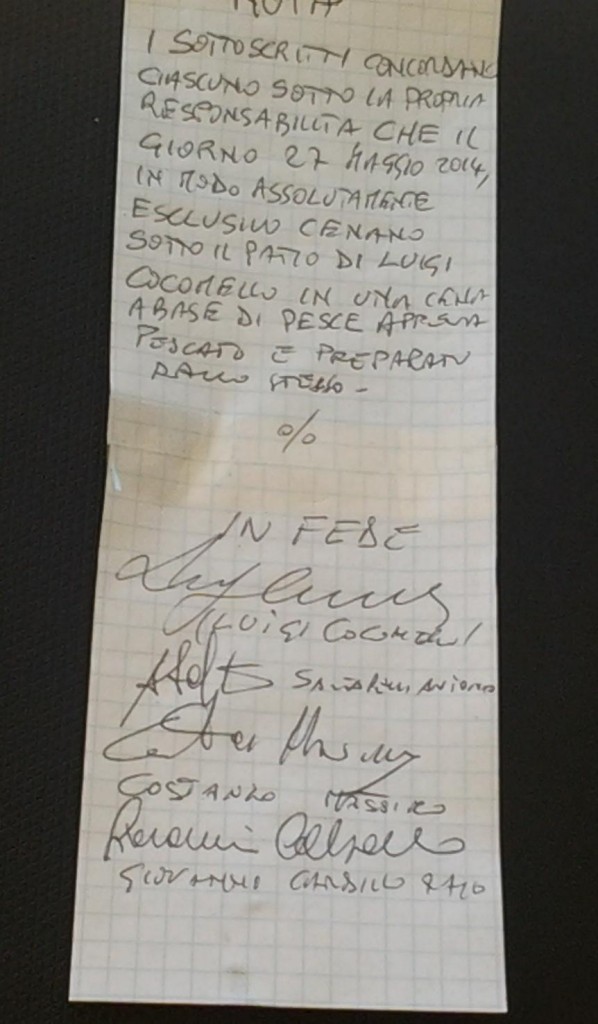 I SOTTOSCRITTI CONCORDANO
CIASCUNO SOTTO LA PROPRIA
RESPONSABILITA CHE IL
GIORNO 27 MAGGIO 2014,
IN MODO ASSOLUTAMENTE
ESCLUSIVO CENANO
SOTTO IL PATIO DI LUIGI
COCOMELLO IN UNA CENA
A BASE DI PESCE APPENA
PESCATO E PREPARATO
DALLO STESSO -
%
IN FEDE
(LUIGI
COSTANZO MASSIMO
GIOVANNI